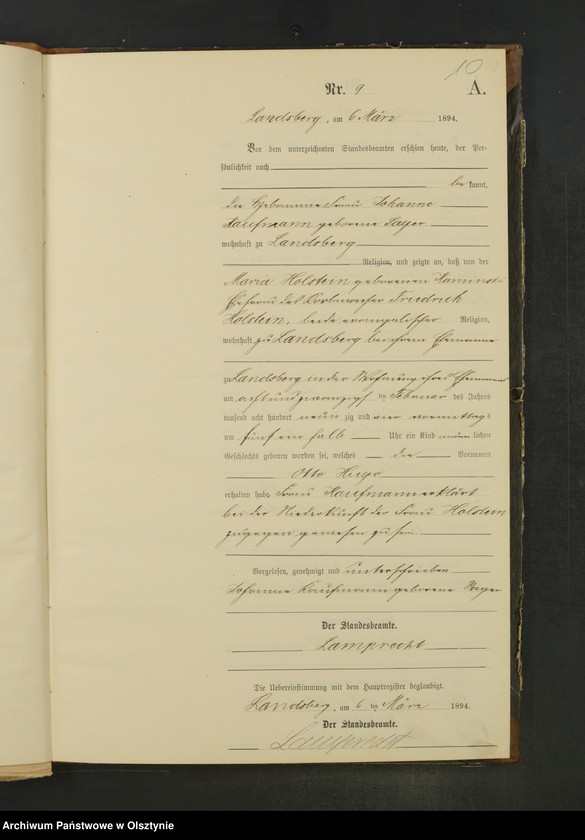 10
Nr. 9 A.
Landsberg, am 6 März 1894.
Vor dem unterzeichneten Standesbeamten erschien heute, der Per-
sönlichkeit nach
be kannt,
die Hebamme Frau Johanne
Kaufmann geborene
wohnhaft zu Landsberg
Religion, und zeigte an, daß von der
Maria Holstein geborenen
Ehefrau des Friedrich
Holstein, beide evangelischer Religion,
wohnhaft zu Landsberg bei ihrem Ehemanne
zu Landsberg in der Wohnung ihres Ehemannes
am achtundzwanzigsten Februar des Jahres
tausend acht hundert neun zig und vier vormittags
um fünf ein halb Uhr ein Kind männlichen
Geschlechts geboren worden sei, welches die Vornamen
Otto Hugo
erhalten habe. Frau Kaufmann erklärt
bei der Niederkunft der Frau Holstein
zugegen gewesen zu sein.
Vorgelesen, genehmigt und unterschrieben
Johanne Kaufmann geborene
Der Standesbeamte.
Lamprecht
Die Uebereinstimmung mit dem Hauptregister beglaubigt.
Landsberg, am 6 ten März 1894.
Der Standesbeamte.
Lamprecht
Archiwum Państwowe w Olsztynie